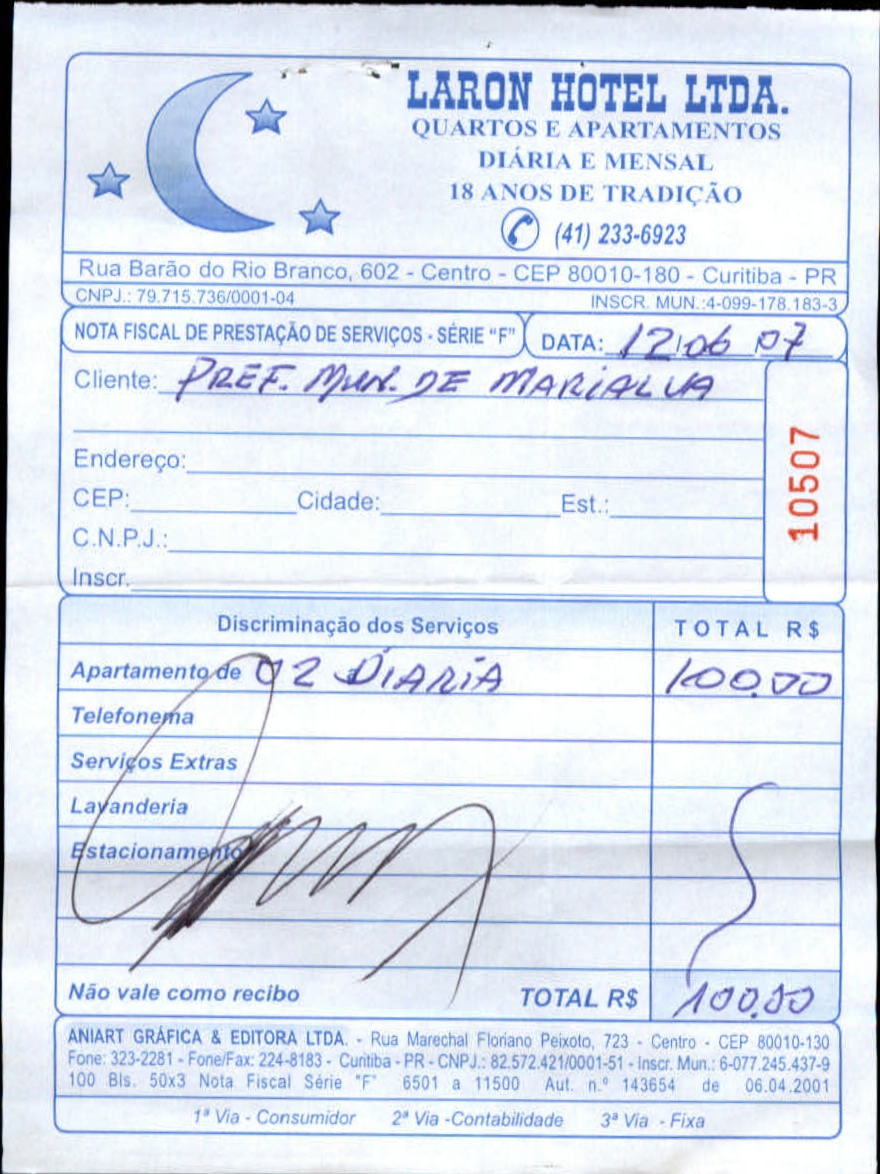 LARON HOTEL LTDA.
QUARTOS E APARTAMENTOS
DIÁRIA E MENSAL
18 ANOS DE TRADIÇÃO
(41) 233-6923
Rua Barão do Rio Branco, 602 - Centro - CEP 80010-180 - Curitiba - PR
CNPJ.: 79.715.736/0001-04 INSCR. MUN.:4-099-178.183-3
NOTA FISCAL DE PRESTAÇÃO DE SERVIÇOS - SÉRIE "F" DATA: 12/06 07
Cliente: PREF. MUN. DE MARIALVA
10507
Endereço:
CEP: Cidade: Est.:
C.N.P.J.:
Inscr.
Discriminação dos Serviços TOTAL R$
Apartamento de 02 DIARIA 100,00
Telefonema
Serviços Extras
Lavanderia
Estacionamento
Não vale como recibo TOTAL R$ 100,00
ANIART GRÁFICA & EDITORA LTDA. - Rua Marechal Floriano Peixoto, 723 - Centro - CEP 80010-130
Fone: 323-2281 - Fone/Fax: 224-8183 - Curitiba - PR - CNPJ.: 82.572.421/0001-51 - Inscr. Mun.: 6-077.245.437-9
100 Bls. 50x3 Nota Fiscal Série "F" 6501 a 11500 Aut. n.º 143654 de 06.04.2001
1ª Via - Consumidor 2ª Via -Contabilidade 3ª Via - Fixa